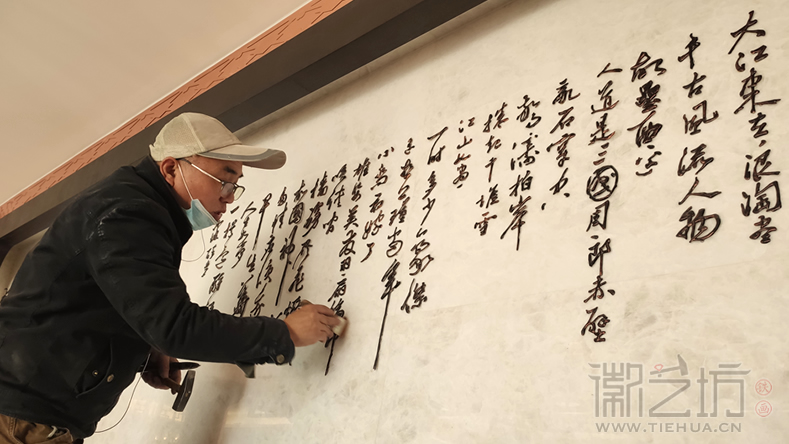 大江東去浪淘盡
千古風流人物
故壘西邊
人道是三國周郎赤壁
亂石穿空
驚濤拍岸
捲起千堆雪
江山如畫
一時多少豪傑
遙想公瑾當年
小喬初嫁了
雄姿英發羽扇
檣櫓灰飛
故國神
人生
徽艺坊
铁画
WWW.TIEHUA.CN